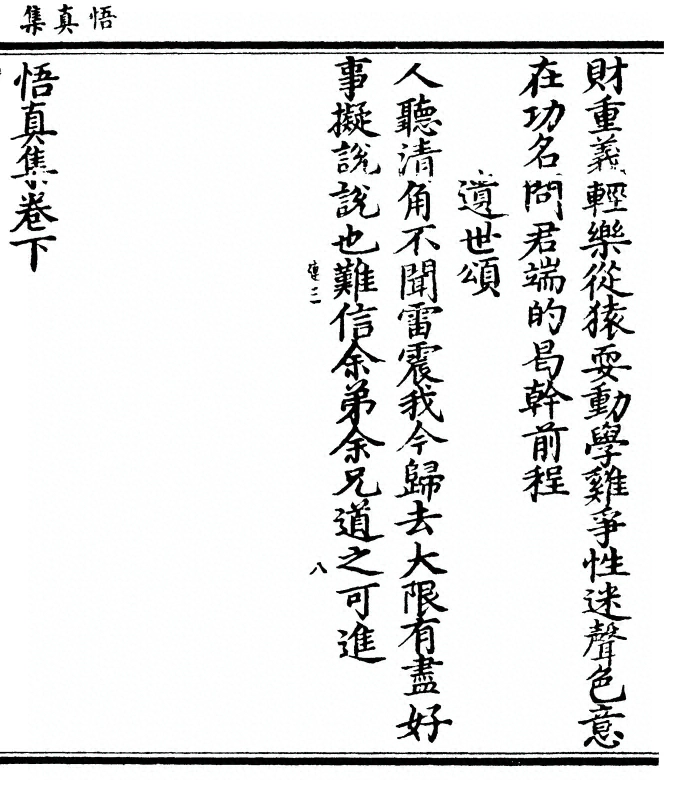 悟真集
財重義輕樂從猿耍動學雞爭性迷聲色意
在功名問君端的曷幹前程
遺世頌
人聽清角不聞雷震我今歸去大限有盡好
事擬說說也難信余弟余兄道之可進
連三
八
悟真集卷下